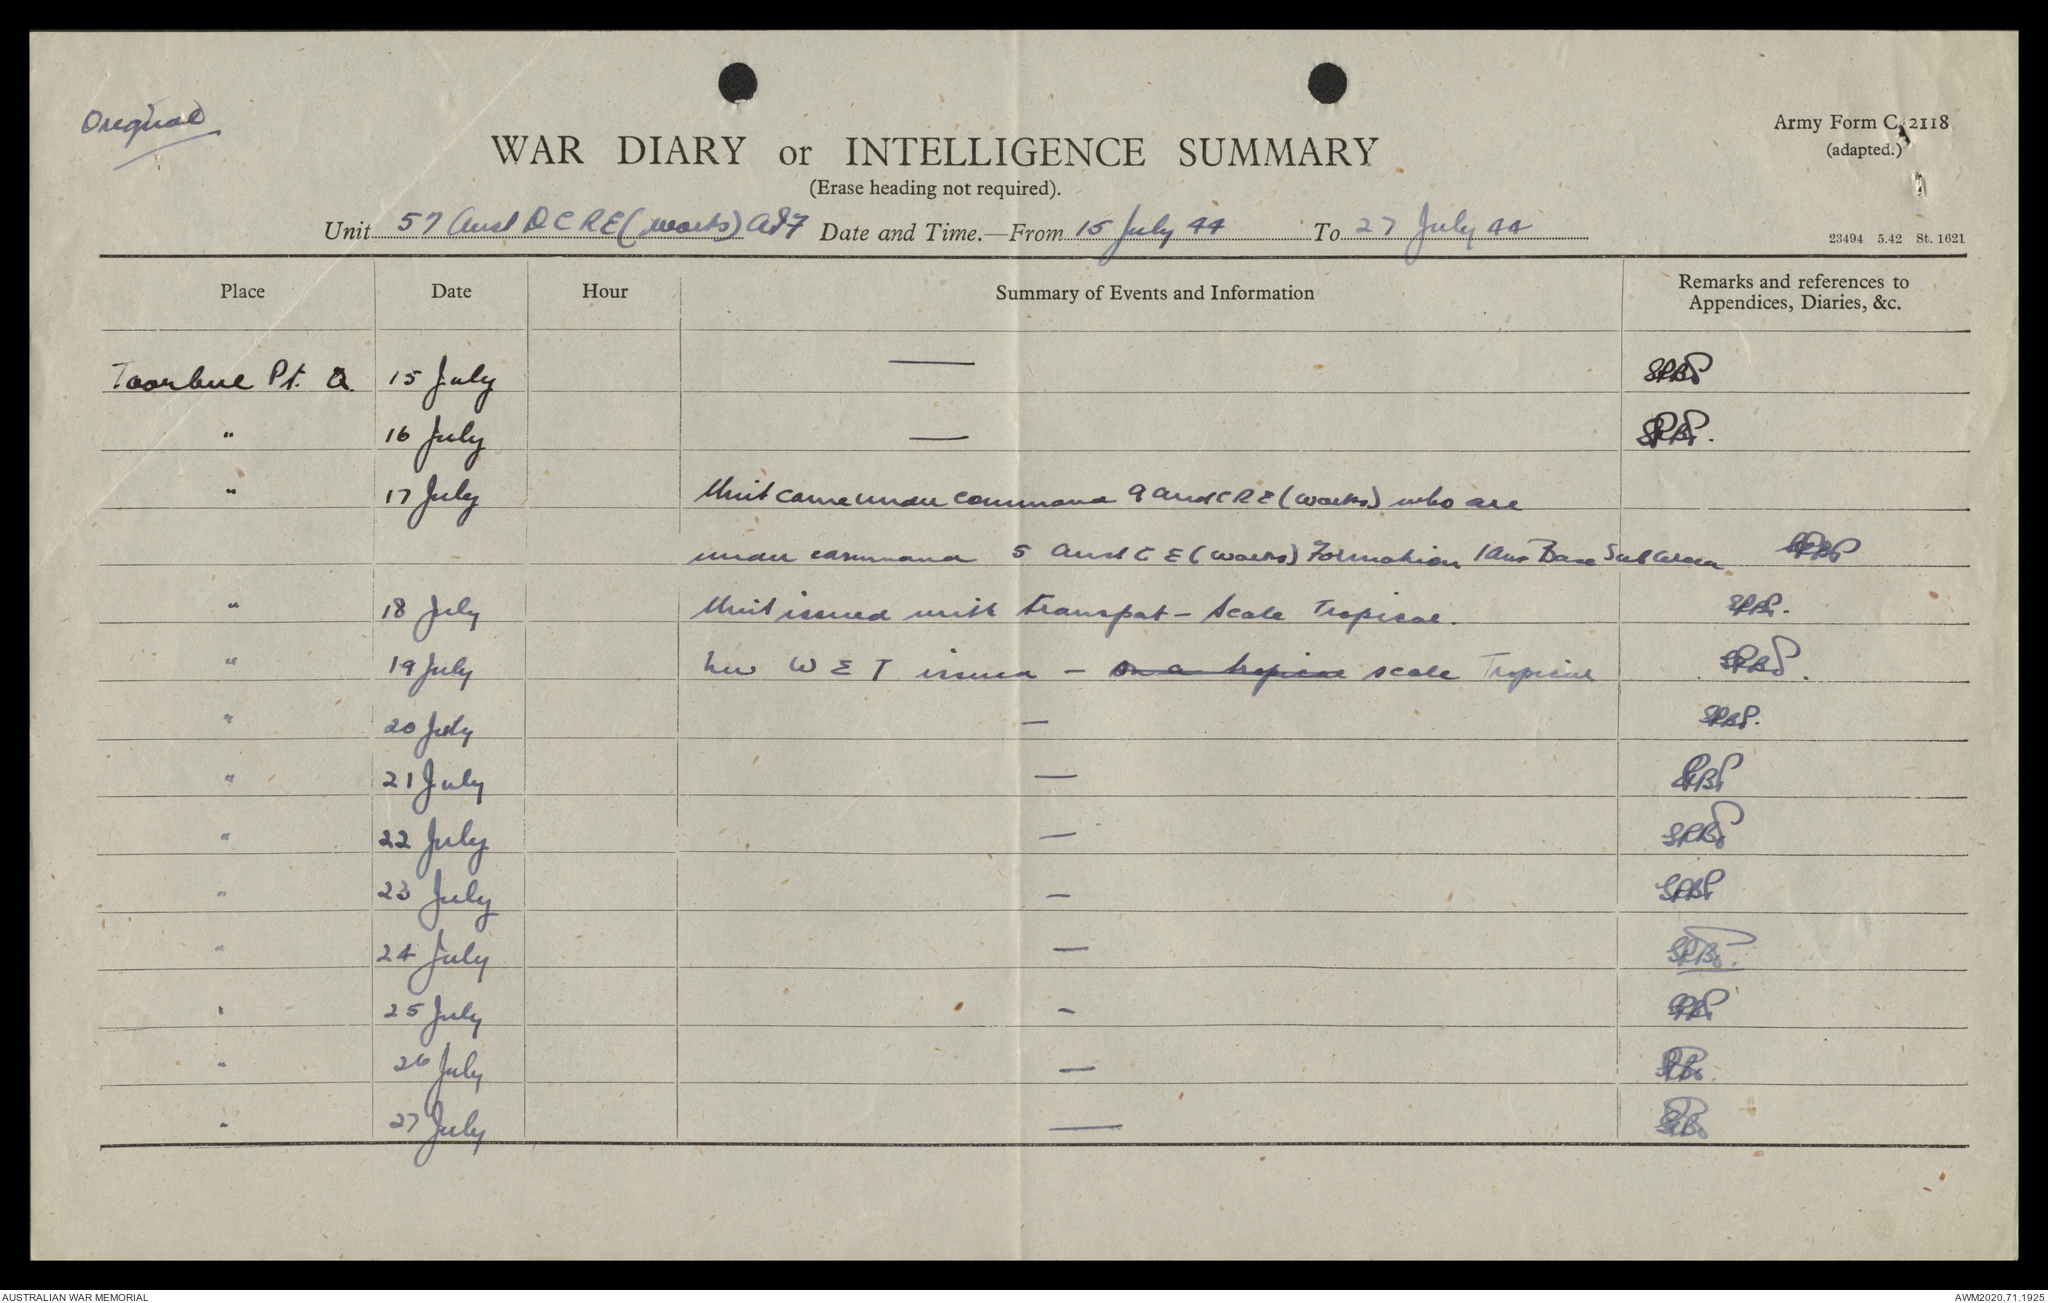 Original
Army Form C. 2118
(adapted.)
WAR DIARY or INTELLIGENCE SUMMARY
(Erase heading not required).
Unit 57 Aust DCRE (Works) AIF Date and Time.—From 15 July 44 To 27 July 44
23494 5.42 St. 1621
Place Date Hour Summary of Events and Information Remarks and references to
Appendices, Diaries, &c.
Toorbul Pt. Q 15 July — SRBP
" 16 July — SRBP.
" 17 July Unit came under command 9 Aust CRE (Works) who are
under command 5 Aust CE (Works) Formation 1 Aus Base Sub Area SRBP
" 18 July Unit issued with transport - Scale Tropical. SRBP.
" 19 July New WET issued - on a tropical scale Tropical SRBP.
" 20 July — SRBP.
" 21 July — SRBP
" 22 July — SRBP
" 23 July — SRBP
" 24 July — SRBP.
" 25 July — SRBP
" 26 July — SRBP.
" 27 July — SRBP
AUSTRALIAN WAR MEMORIAL
AWM2020.71.1925